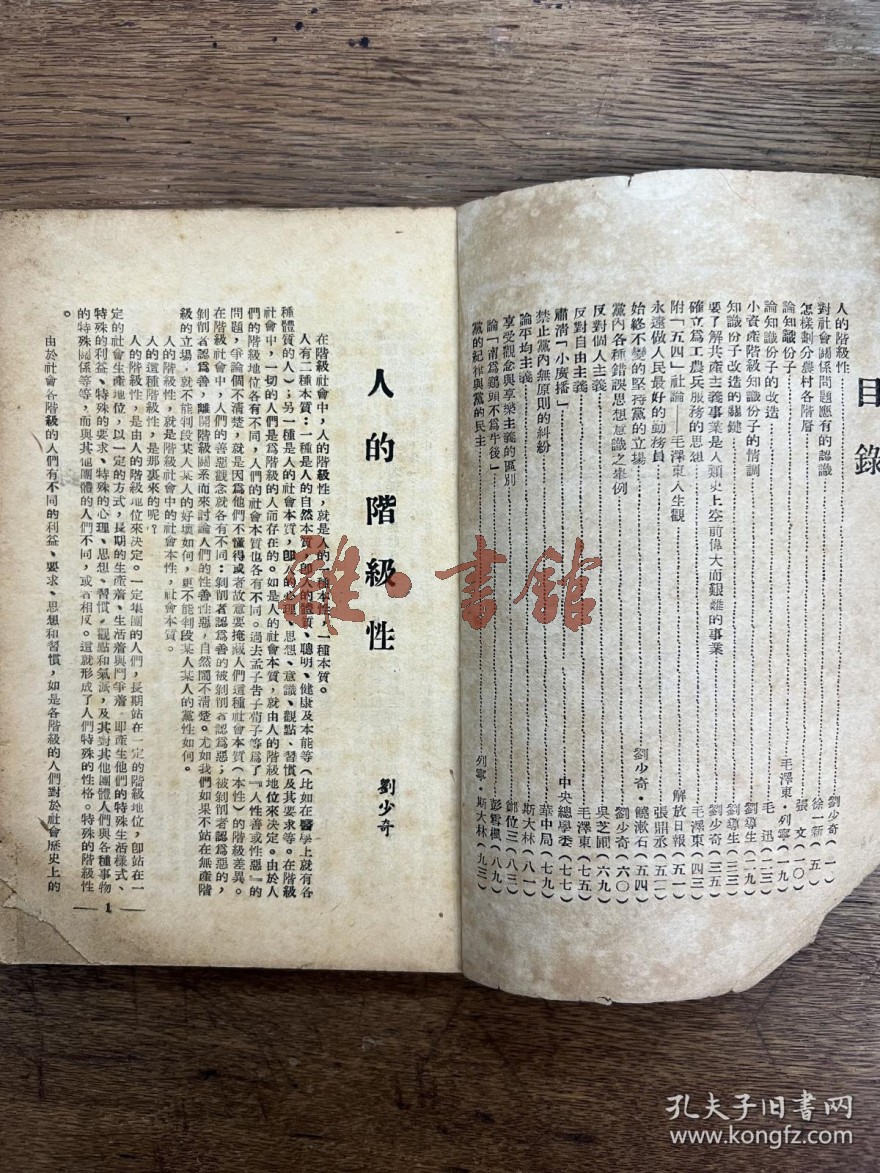 目錄
人的階級性……劉少奇（一）
對社會關係問題應有的認識……徐一新（五）
怎樣劃分農村各階層……張　文（一〇）
論知識份子……毛澤東·列寧（一九）
論知識份子的改造……毛　迅（二三）
小資產階級知識份子的情調……劉導生（二九）
知識份子改造的關鍵……劉導生（三三）
要了解共產主義事業是人類史上空前偉大而艱難的事業……劉少奇（三五）
確立爲工農兵服務的思想……毛澤東（四三）
附「五四」社論——毛澤東人生觀……解放日報（五一）
永遠做人民最好的勤務員……張鼎丞（五二）
始終不變的堅持黨的立場……劉少奇·饒漱石（五四）
黨內各種錯誤思想意識之來例……劉少奇（六〇）
反對個人主義……吳芝圃（六九）
反對自由主義……毛澤東（七五）
肅清「小廣播」……中央總學委（七七）
禁止黨內無原則的糾紛……華中局（七九）
論平均主義……斯大林（八一）
享受觀念與享樂主義的區別……鄭位三（八三）
論「甯爲鷄頭不爲牛後」……彭雪楓（八九）
黨的紀律與黨的民主……列寧·斯大林（九三）
人的階級性
劉少奇
在階級社會中，人的階級性，就是人的一種本性，一種本質。
人有二種本質：一種是人的自然本質，即人的體質、聰明、健康及本能等（比如在醫學上就有各
種體質的人）；另一種是人的社會本質，即人的心理、思想、意識、觀點、習慣及其要求等。在階級
社會中，一切的人們是爲階級的人而存在的。如是人的社會本質，就由人的階級地位來決定。由於人
們的階級地位各有不同，人們的社會本質也各有不同。過去孟子告子荀子等爲了『人性善或性惡』的
問題，爭論個不清楚，就是因爲他們不懂得或者故意要掩藏人們這種社會本質（本性）的階級差異。
在階級社會中，人們的善惡觀念就各有不同：剝削者認爲善的被剝削者認爲惡；被剝削者認爲惡的，
剝削者認爲善，離開階級關系而來討論人們的性善性惡，自然鬧不清楚。尤如我們如果不站在無產階
級的立場，就不能判段某人某人的好壞如何，更不能判段某人某人的黨性如何。
人的階級性，就是階級社會中的社會本性，社會本質。
人的這種階級性，是由那裏來的呢？
人的階級性，是由人的階級地位來決定。一定集團的人們，長期站在一定的階級地位，卽站在一
定的社會生產地位，以一定的方式，長期的生產着、生活着與鬥爭着，卽產生他們的特殊生活樣式、
特殊的利益、特殊的要求、特殊的心理、思想、習慣、觀點和氣派，及其對其他團體人們與各種事物
的特殊關係等等，而與其他團體的人們不同，或者相反。這就形成了人們特殊的性格。特殊的階級性
。
由於社會各階級的人們有不同的利益、要求、思想和習慣，如是各階級的人們對於社會歷史上的
1
雜·書館
孔夫子旧書网
www.kongfz.com